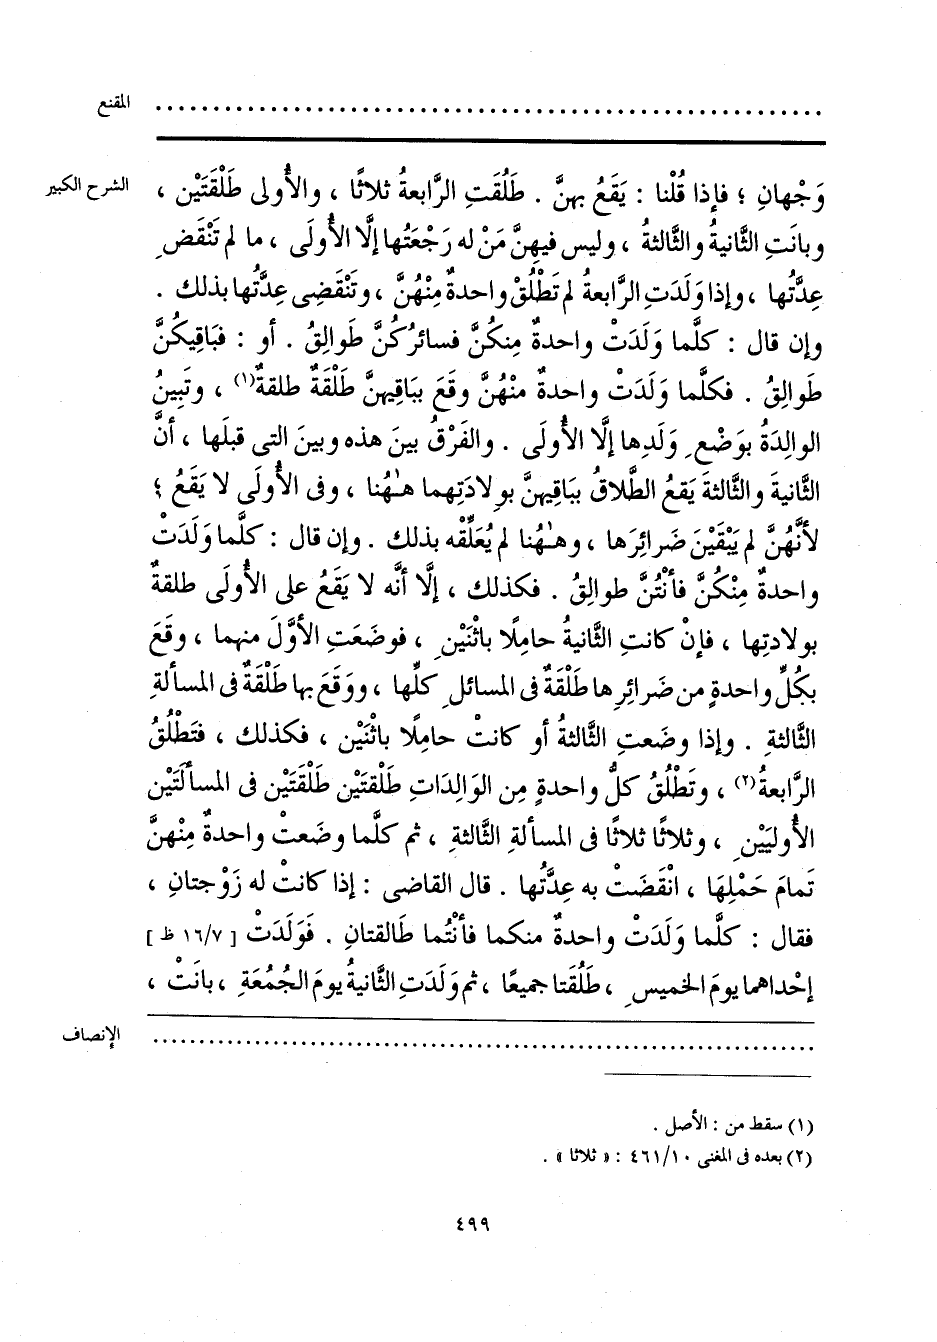 المقنع ............................................................
الشرح الكبير
وَجْهانِ ؛ فإذا قُلْنا : يَقَعُ بهنَّ . طَلُقَتِ الرَّابعةُ ثلاثًا ، والأُولى طَلْقَتَيْن ،
وبانَتِ الثَّانيةُ والثَّالثةُ ، وليس فيهنَّ مَنْ له رَجْعَتُها إلَّا الأُولَى ، ما لم تَنْقَضِ
عِدَّتُها ، وإذا وَلَدَتِ الرَّابعةُ لم تَطْلُقْ واحدةٌ مِنْهُنَّ ، وتَنْقَضِى عِدَّتُها بذلك .
وإن قال : كلَّما وَلَدَتْ واحدةٌ مِنكُنَّ فسائرُكُنَّ طَوالِقُ . أو : فبَاقِيكُنَّ
طَوالِقُ . فكلَّما وَلَدَتْ واحدةٌ منْهُنَّ وقَعَ ببَاقِيهنَّ طَلْقَةٌ طلقةٌ(١) ، وتَبِينُ
الوالِدَةُ بوَضْعِ وَلَدِها إلَّا الأُولَى . والفَرْقُ بينَ هذه وبينَ التى قبلَها ، أنَّ
الثَّانيةَ والثَّالثةَ يَقعُ الطَّلاقُ ببَاقِيهنَّ بوِلادَتِهما هـٰهُنا ، وفى الأُولَى لا يَقَعُ ؛
لأنَّهُنَّ لم يَبْقَيْنَ ضَرائرَها ، وهـٰهُنا لم يُعَلِّقْه بذلك . وإن قال : كلَّما وَلَدَتْ
واحدةٌ مِنْكُنَّ فأنْتُنَّ طوالِقُ . فكذلك ، إلَّا أنَّه لا يَقَعُ على الأُولَى طلقةٌ
بوِلادتِها ، فإنْ كانتِ الثَّانيةُ حامِلًا باثْنَيْنِ ، فوضَعَتِ الأوَّلَ منهما ، وقَعَ
بكُلِّ واحدةٍ من ضَرائرِها طَلْقَةٌ فى المسائلِ كلِّها ، ووَقَعَ بها طَلْقَةٌ فى المسألةِ
الثَّالثةِ . وإذا وضَعتِ الثَّالثةُ أو كانتْ حامِلًا باثْنَيْن ، فكذلك ، فتَطْلُقُ
الرَّابعةُ(٢) ، وتَطْلُقُ كلُّ واحدةٍ مِن الوَالِداتِ طَلْقتَيْن طَلْقَتَيْن فى المسألَتَيْن
الأُوليَيْنِ ، وثلاثًا ثلاثًا فى المسألةِ الثَّالثةِ ، ثم كلَّما وضعتْ واحدةٌ مِنْهنَّ
تَمامَ حَمْلِهَا ، انْقَضَتْ به عِدَّتُها . قال القاضى : إذا كانتْ له زَوْجتانِ ،
فقال : كلَّما وَلَدَتْ واحدةٌ منكما فأنْتُما طَالقتانِ . فَوَلَدَتْ [ ١٦/٧ ظ ]
إحْداهما يومَ الخميسِ ، طَلُقَتا جميعًا ، ثم وَلَدَتِ الثَّانيةُ يومَ الجُمُعَةِ ، بانَتْ ،
الإنصاف ............................................................
(١) سقط من : الأصل .
(٢) بعده فى المغنى ٤٦١/١٠ : « ثلاثا » .
٤٩٩